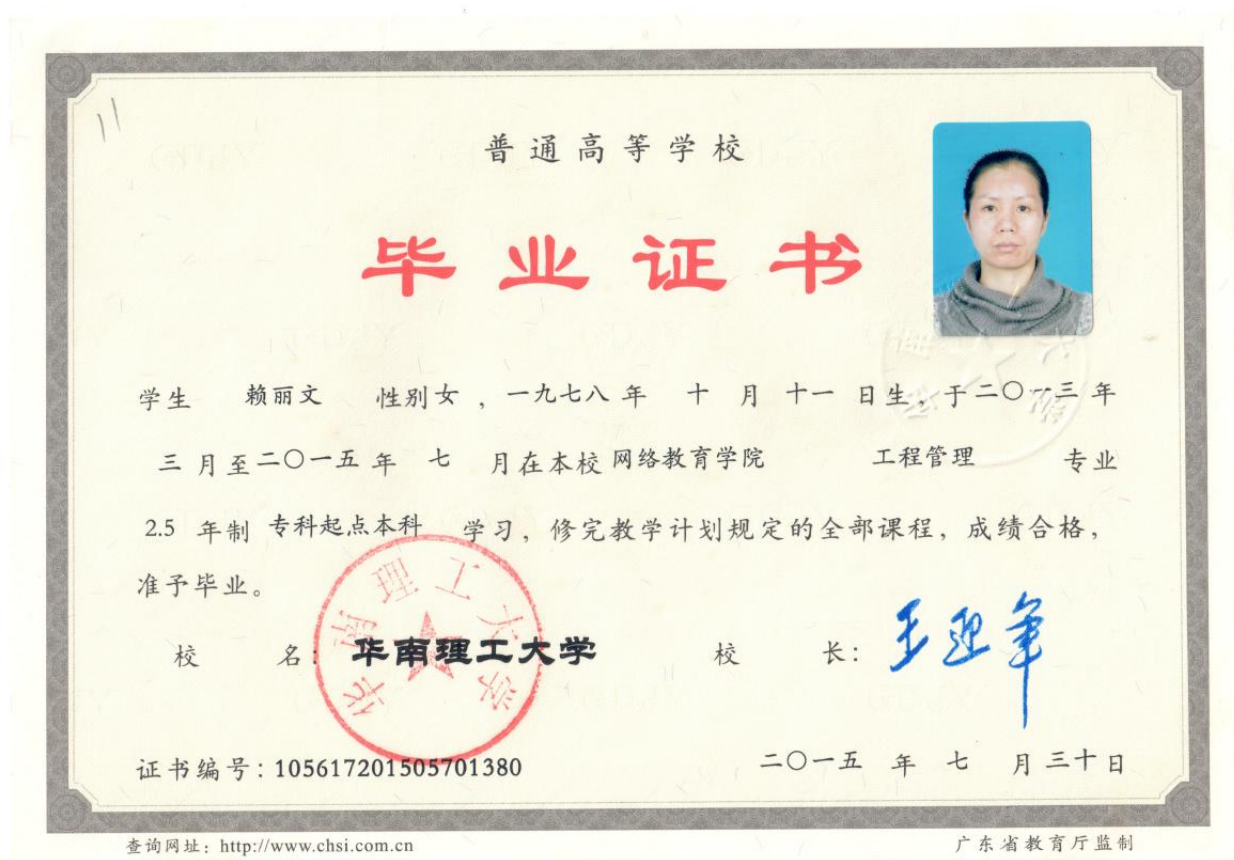 11
普通高等学校
毕业证书
学生 赖丽文 性别女，一九七八年 十 月 十一 日生，于二〇一三年
三月至二〇一五年 七 月在本校 网络教育学院 工程管理 专业
2.5 年制 专科起点本科 学习，修完教学计划规定的全部课程，成绩合格，
准予毕业。
华南理工大学
校 名：华南理工大学 校 长：王迎军
证书编号：105617201505701380 二〇一五 年 七 月 三十 日
查询网址：http://www.chsi.com.cn 广东省教育厅监制